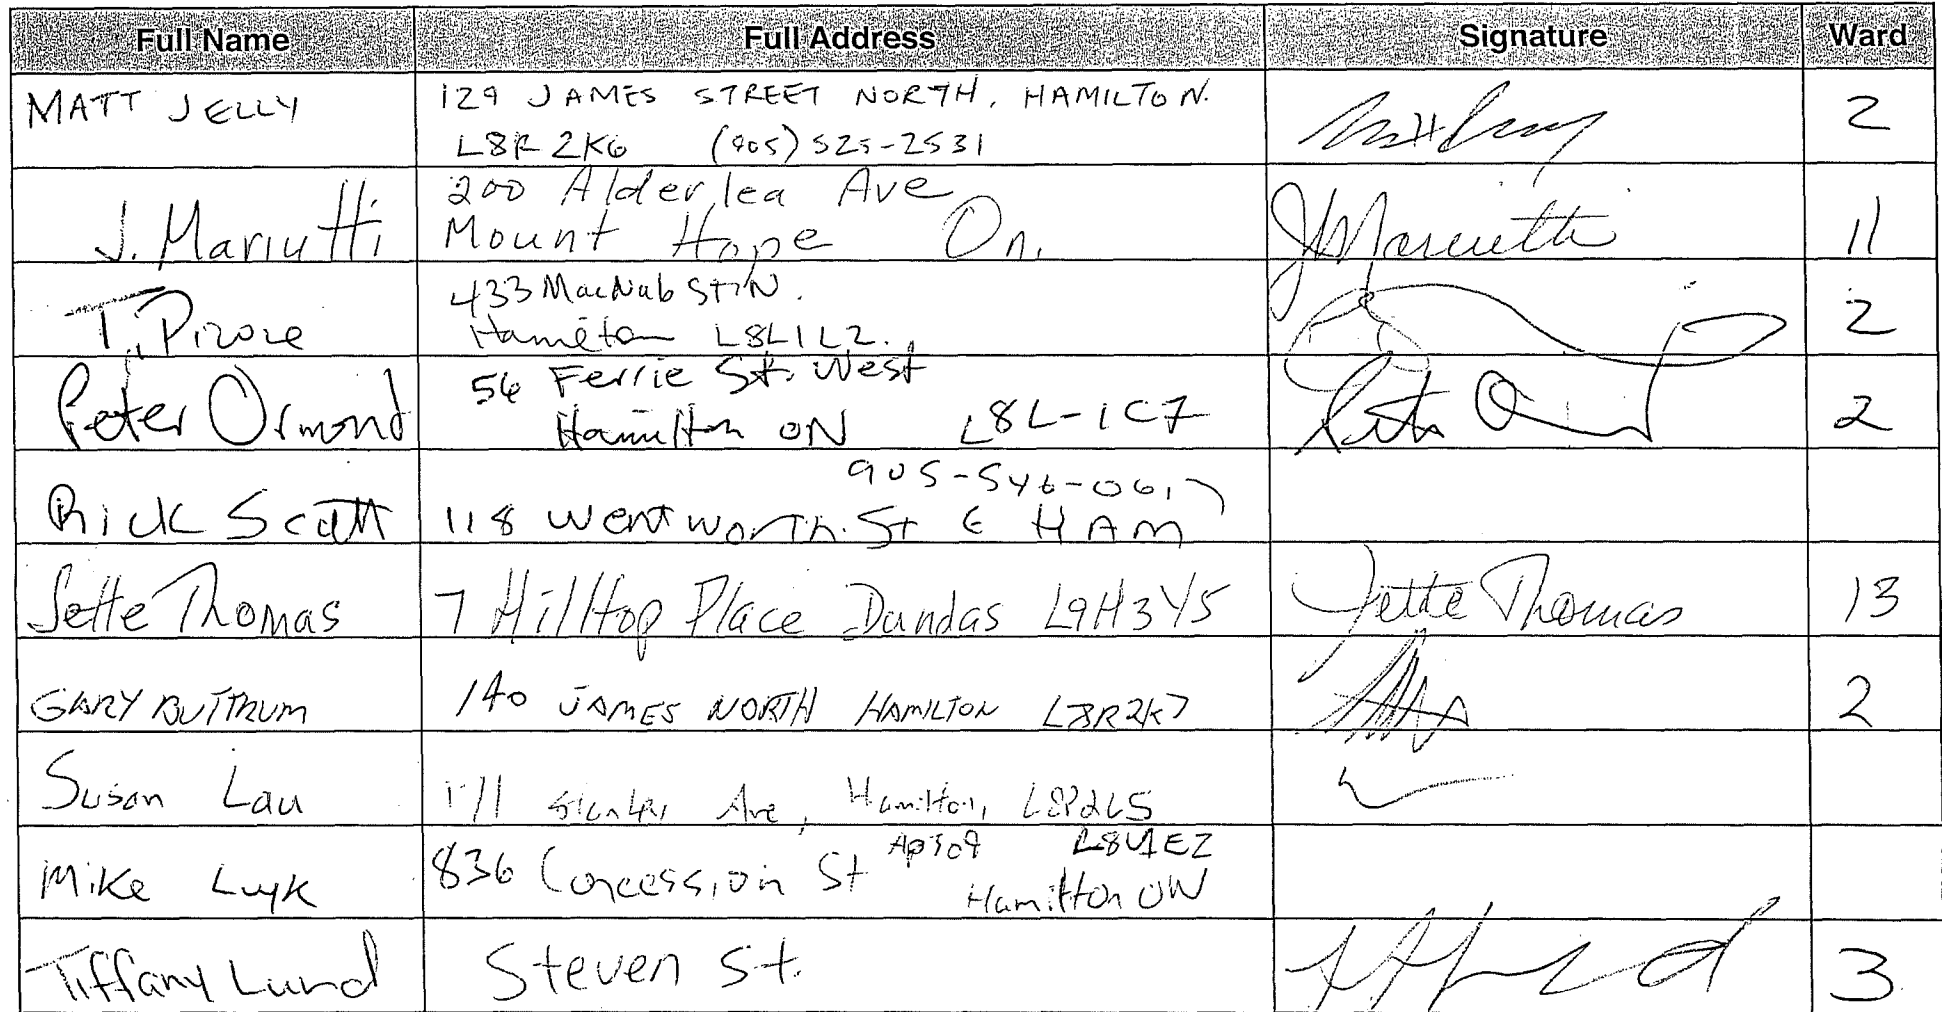 Full Name Full Address Signature Ward
MATT JELLY 129 JAMES STREET NORTH, HAMILTON. 2
L8R 2K6 (905) 525-2531
J. Mariutti 200 Alderlea Ave J Mariutti 11
Mount Hope On.
433 MacNab St. N. 2
Hamilton L8L1L2.
Peter Ormond 56 Ferrie St. West 2
Hamilton ON L8L-1C7
905-546-061
Rick Scott 118 Wentworth St HAM
Jette Thomas 7 Hilltop Place Dundas L9H3Y5 Jette Thomas 13
GARY BUTTRUM 140 JAMES NORTH HAMILTON L8R2K7 2
Susan Lau Ave, Hamilton, L8P2L5
Mike Luyk 836 Concession St L8V1E2
Hamilton ON
Tiffany Lund Steven St. 3